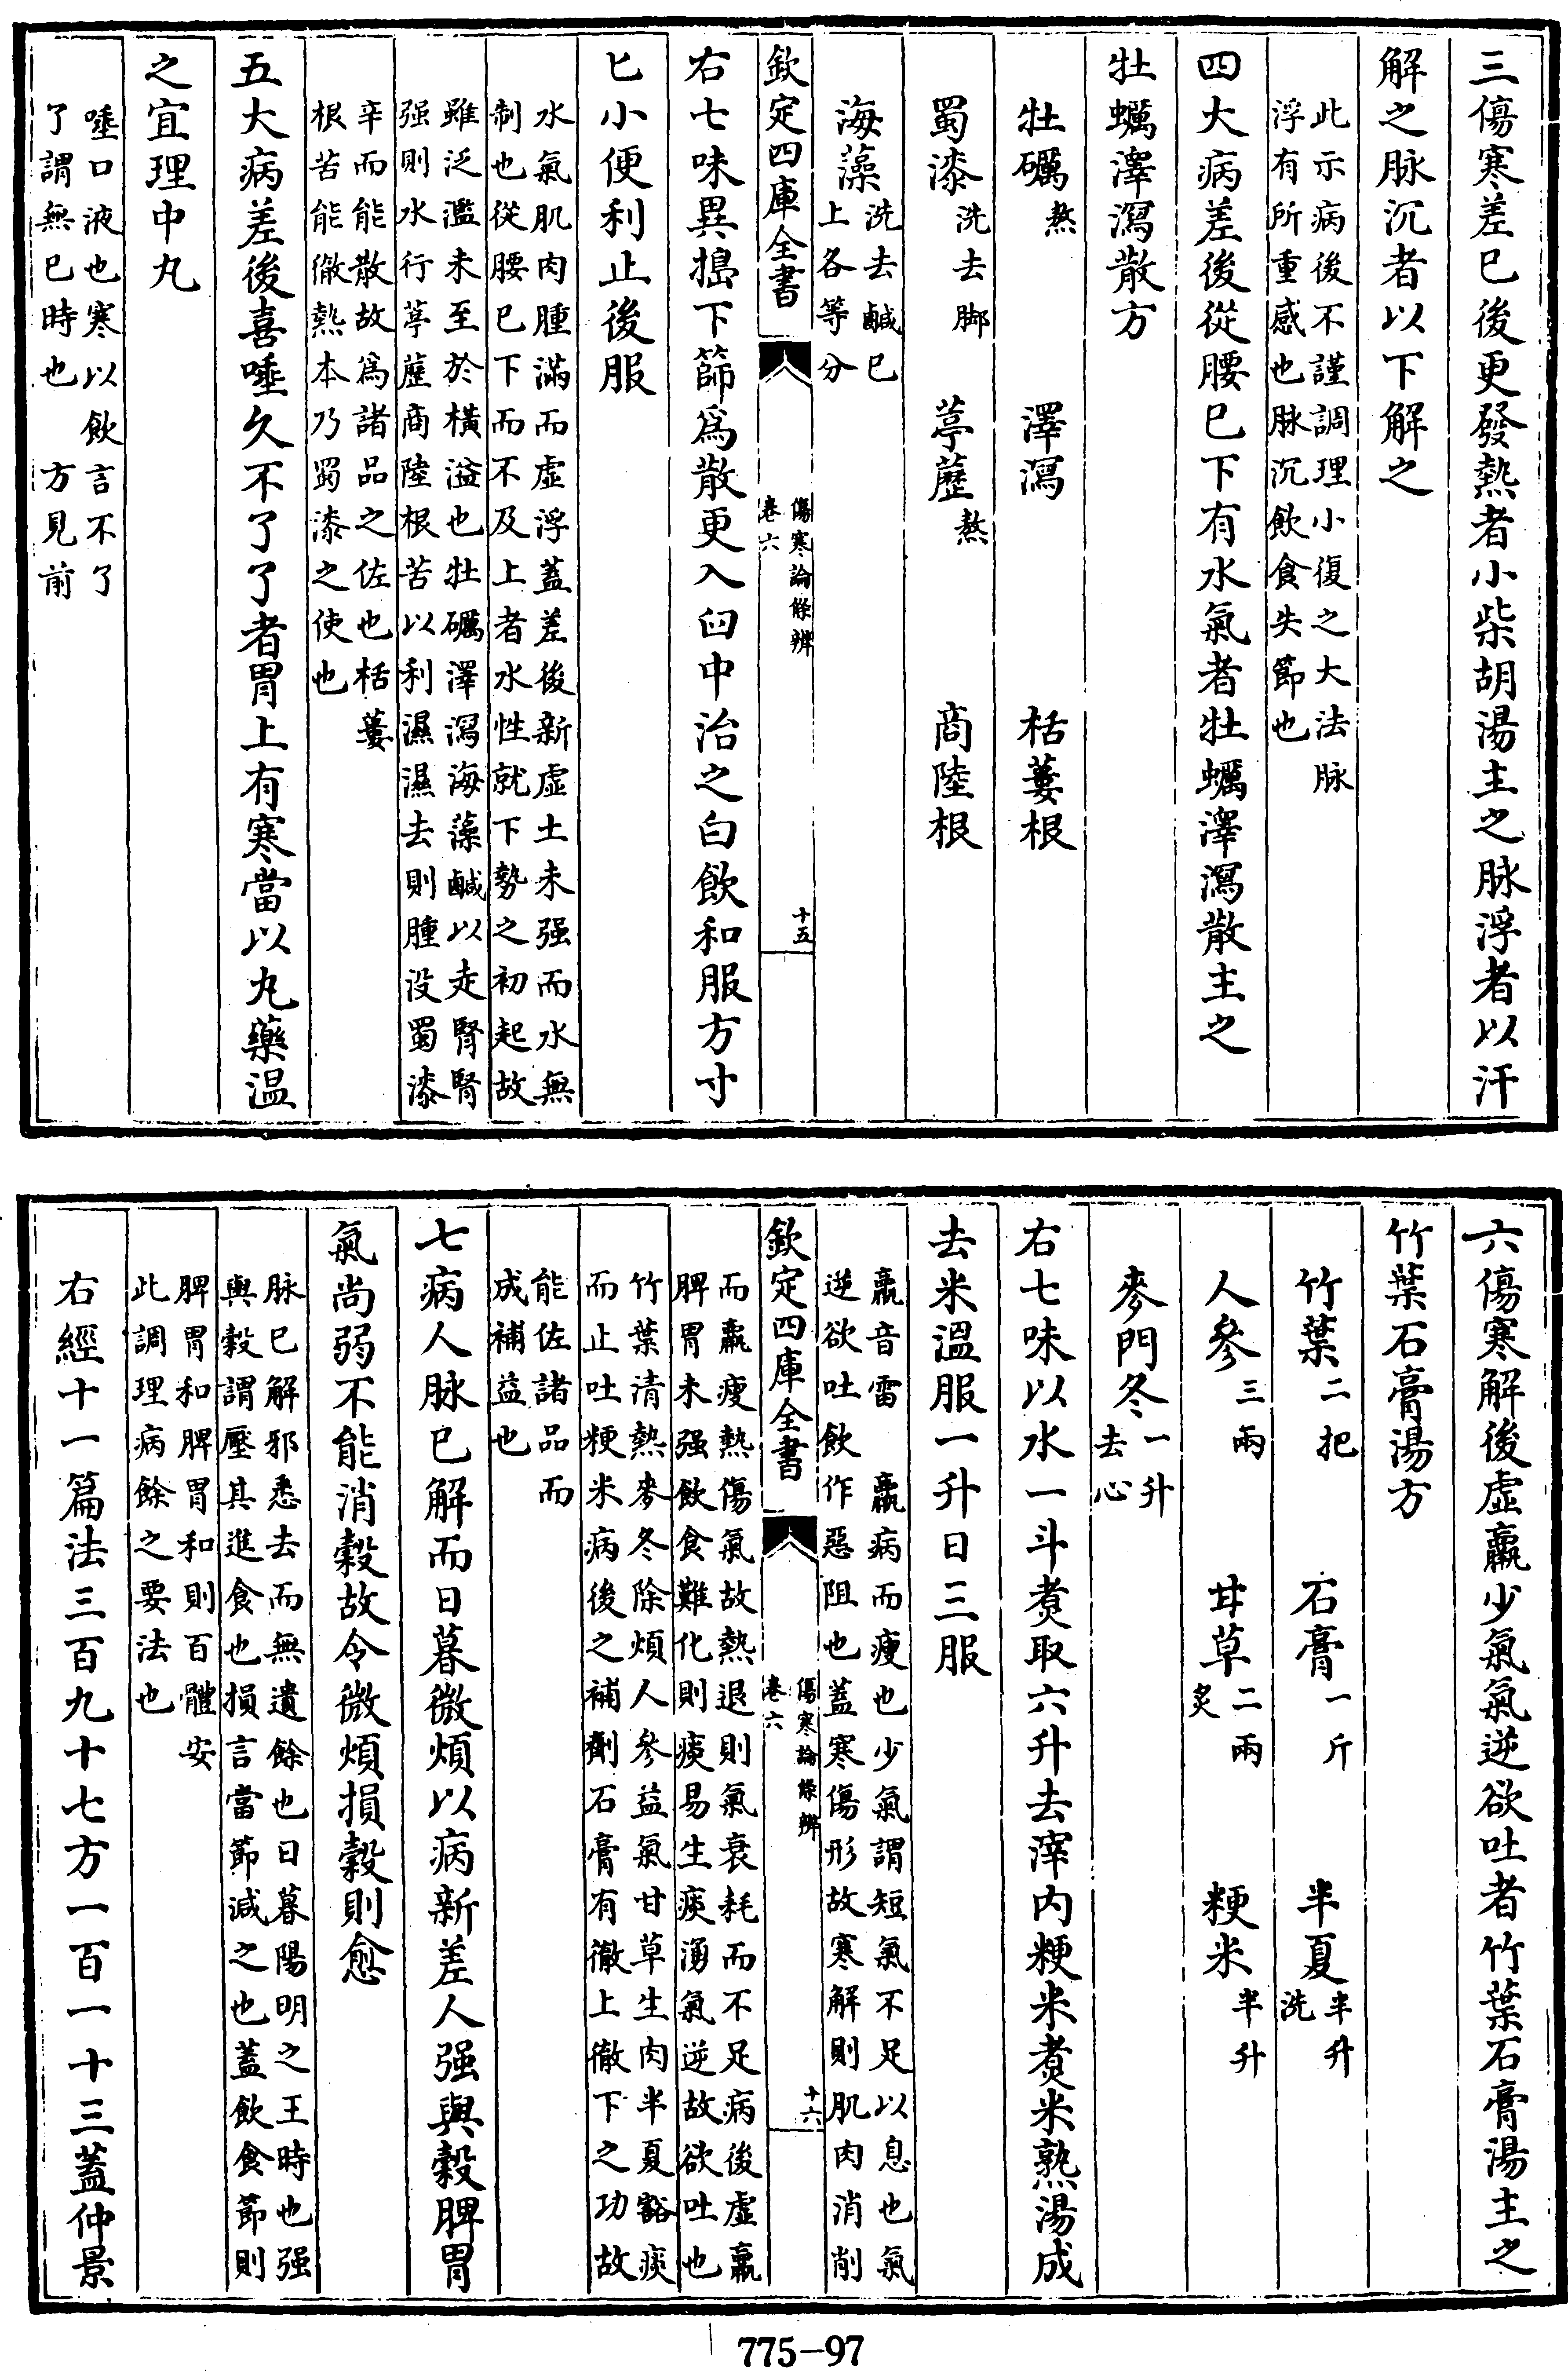 三傷寒差已後更發熱者小柴胡湯主之脉浮者以汗
解之脉沉者以下解之
此示病後不謹調理小復之大法脉
浮有所重感也脉沉飲食失節也
四大病差後從腰已下有水氣者牡蠣澤瀉散主之
牡蠣澤瀉散方
牡礪熬 澤瀉 栝蔞根
蜀漆洗去脚 葶藶熬 商陸根
海藻洗去鹹已
上各等分
欽定四庫全書
傷寒論條辨
卷六
十五
右七味異搗下篩爲散更入臼中治之白飲和服方寸
匕小便利止後服
水氣肌肉腫滿而虛浮蓋差後新虛土未强而水無
制也從腰已下而不及上者水性就下勢之初起故
雖泛濫未至於橫溢也牡礪澤瀉海藻鹹以走腎腎
强則水行葶藶商陸根苦以利濕濕去則腫没蜀漆
辛而能散故爲諸品之佐也栝蔞
根苦能徹熱本乃蜀漆之使也
五大病差後喜唾久不了了者胃上有寒當以丸藥温
之宜理中丸
唾口液也寒以飲言不了
了謂無已時也 方見前
六傷寒解後虛羸少氣氣逆欲吐者竹葉石膏湯主之
竹葉石膏湯方
竹葉二把 石膏一斤 半夏半升洗
人參三兩 甘草二兩炙 粳米半升
麥門冬一升去心
右七味以水一斗煑取六升去滓内粳米煑米熟湯成
去米溫服一升日三服
羸音雷 羸病而瘦也少氣謂短氣不足以息也氣
逆欲吐飲作惡阻也蓋寒傷形故寒解則肌肉消削
欽定四庫全書
傷寒論條辨
卷六
十六
而羸瘦熱傷氣故熱退則氣衰耗而不足病後虛羸
脾胃未强飲食難化則痰易生痰湧氣逆故欲吐也
竹葉清熱麥冬除煩人參益氣甘草生肉半夏豁痰
而止吐粳米病後之補劑石膏有徹上徹下之功故
能佐諸品而
成補益也
七病人脉已解而日暮微煩以病新差人强與穀脾胃
氣尚弱不能消穀故令微煩損穀則愈
脉已解邪悉去而無遺餘也日暮陽明之王時也强
與穀謂壓其進食也損言當節減之也蓋飲食節則
脾胃和脾胃和則百體安
此調理病餘之要法也
右經十一篇法三百九十七方一百一十三蓋仲景
775-97